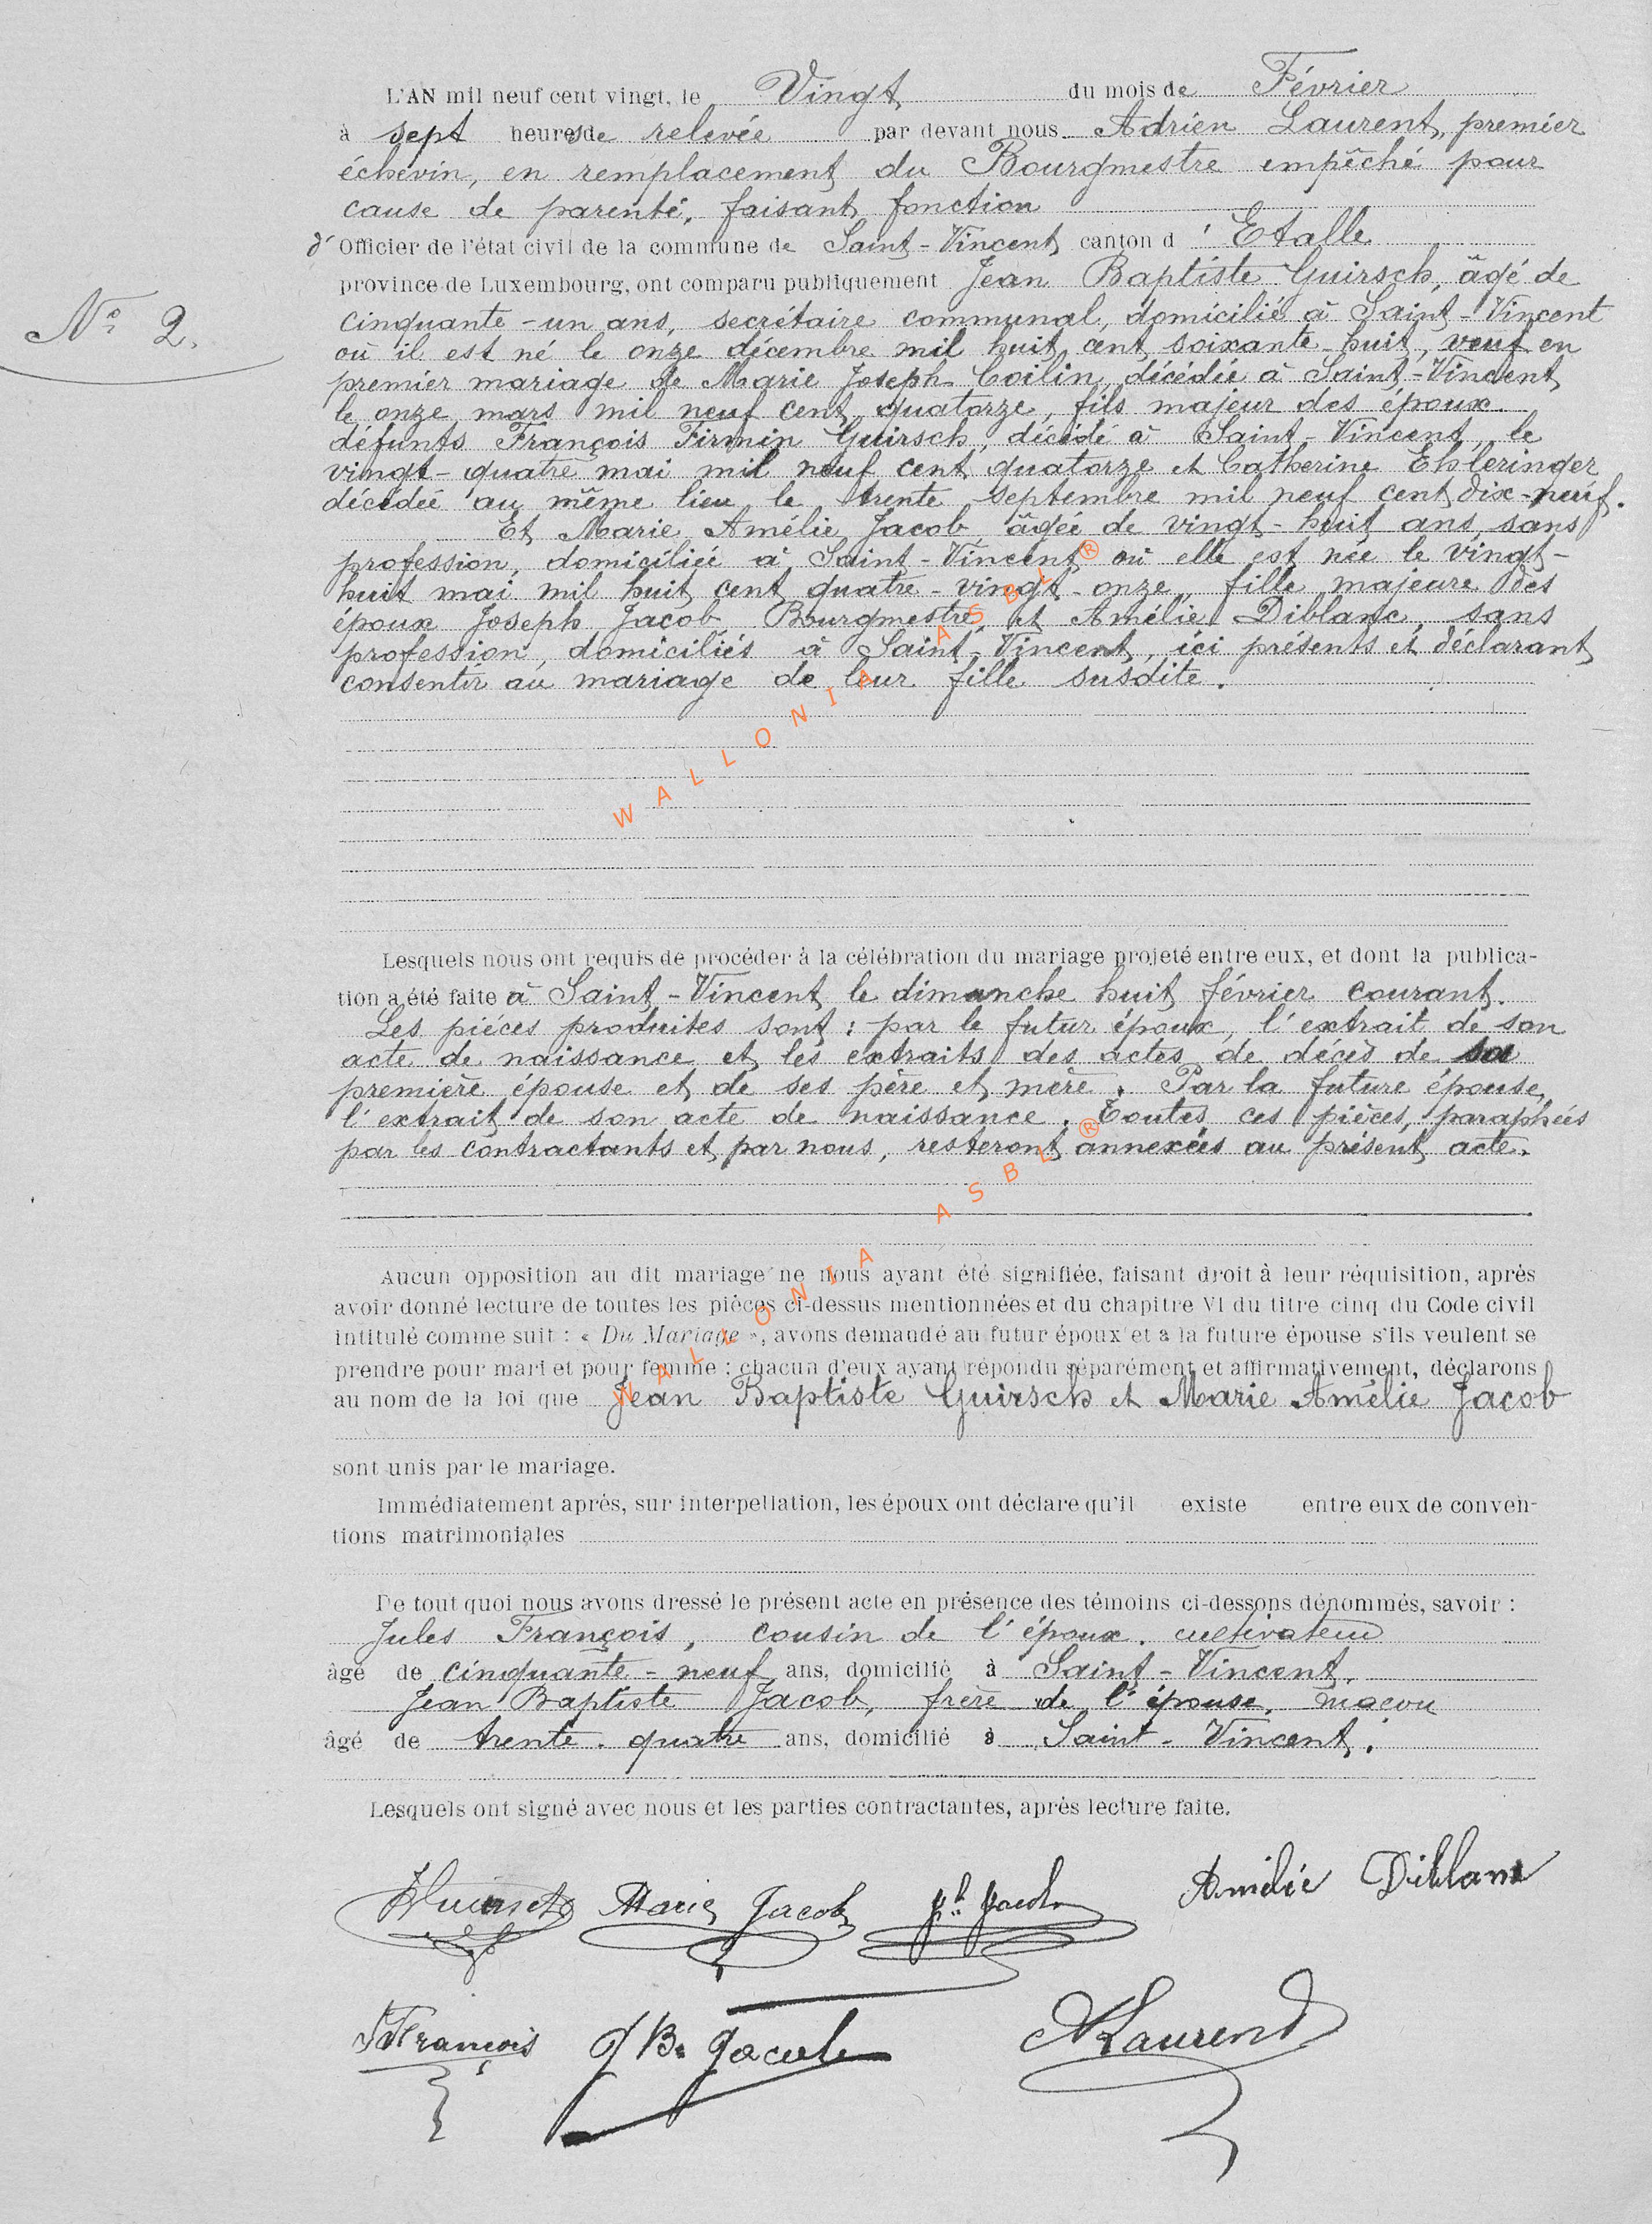 L'AN mil neuf cent vingt, le Vingt du mois de Février
à sept heures de relevée par devant nous Adrien Laurent, premier
échevin, en remplacement du Bourgmestre empêché pour
cause de parenté, faisant fonction
d' Officier de l'état civil de la commune de Saint-Vincent canton d' Etalle
province de Luxembourg, ont comparu publiquement Jean Baptiste Guirsch, âgé de
N° 2.
cinquante-un ans, secrétaire communal, domicilié à Saint-Vincent
où il est né le onze décembre mil huit cent soixante-huit, veuf en
premier mariage de Marie Joseph Coilin, décédée à Saint-Vincent
le onze mars mil neuf cent quatorze, fils majeur des époux
défunts François Firmin Guirsch, décédé à Saint-Vincent, le
vingt-quatre mai mil neuf cent quatorze et Catherine Ehleringer
décédée au même lieu le trente septembre mil neuf cent dix-neuf.
Et Marie Amélie Jacob, âgée de vingt-huit ans, sans
profession, domiciliée à Saint-Vincent où elle est née le vingt-
huit mai mil huit cent quatre-vingt-onze, fille majeure des
époux Joseph Jacob, Bourgmestre, et Amélie Diblanc, sans
profession, domiciliés à Saint-Vincent, ici présents et déclarant
consentir au mariage de leur fille susdite.
WALLONIA ASBL ®
Lesquels nous ont requis de procéder à la célébration du mariage projeté entre eux, et dont la publica-
tion a été faite à Saint-Vincent le dimanche huit février courant.
Les pièces produites sont : par le futur époux, l'extrait de son
acte de naissance et les extraits des actes de décès de sa
première épouse et de ses père et mère. Par la future épouse,
l'extrait de son acte de naissance. Toutes ces pièces, paraphées
par les contractants et par nous, resteront annexées au présent acte.
WALLONIA ASBL ®
Aucun opposition au dit mariage ne nous ayant été signifiée, faisant droit à leur réquisition, après
avoir donné lecture de toutes les pièces ci-dessus mentionnées et du chapitre VI du titre cinq du Code civil
intitulé comme suit : « Du Mariage », avons demandé au futur époux et a la future épouse s'ils veulent se
prendre pour mari et pour femme : chacun d'eux ayant répondu séparément et affirmativement, déclarons
au nom de la loi que Jean Baptiste Guirsch et Marie Amélie Jacob
sont unis par le mariage.
Immédiatement après, sur interpellation, les époux ont déclare qu'il existe entre eux de conven-
tions matrimoniales
De tout quoi nous avons dressé le présent acte en présence des témoins ci-dessons dénommés, savoir :
Jules François, cousin de l'époux. cultivateur
âgé de cinquante-neuf ans, domicilié à Saint-Vincent,
Jean Baptiste Jacob, frère de l'épouse, maçon
âgé de trente-quatre ans, domicilié à Saint-Vincent.
Lesquels ont signé avec nous et les parties contractantes, après lecture faite.
JBGuirsch Marie Jacob Jh Jacob Amélie Diblanc
J François J B. Jacob A Laurent